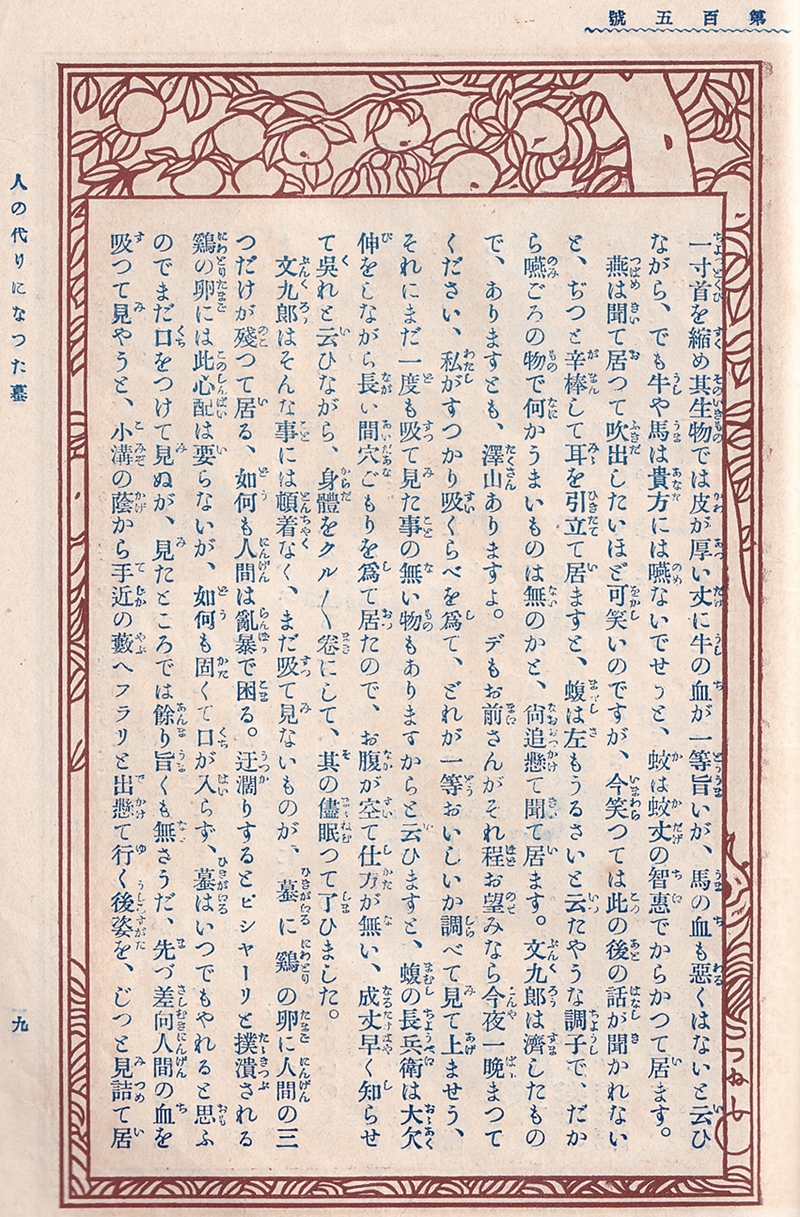 第百五號
一寸首を縮め其生物では皮が厚い丈に牛の血が一等旨いが、馬の血も惡くはないと云ひ
ながら、でも牛や馬は貴方には嚥ないでせうと、蚊は蚊丈の智惠でからかつて居ます。
燕は聞て居つて吹出したいほど可笑いのですが、今笑つては此の後の話が聞かれない
と、ぢつと辛棒して耳を引立て居ますと、蝮は左もうるさいと云たやうな調子で、だか
ら嚥ごろの物で何かうまいものは無のかと、尙追懸て聞て居ます。文九郎は濟したもの
で、ありますとも、澤山ありますよ。デもお前さんがそれ程お望みなら今夜一晩まつて
ください、私がすつかり吸くらべを爲て、どれが一等おいしいか調べて見て上ませう、
それにまだ一度も吸て見た事の無い物もありますからと云ひますと、蝮の長兵衞は大欠
伸をしながら長い間穴ごもりを爲て居たので、お腹が空て仕方が無い、成丈早く知らせ
て吳れと云ひながら、身體をクル〳〵卷にして、其の儘眠つて了ひました。
文九郎はそんな事には頓着なく、まだ吸て見ないものが、蟇に鷄の卵に人間の三
つだけが殘つて居る、如何も人間は亂暴で困る。迂濶りするとピシャーリと撲潰される
鷄の卵には此心配は要らないが、如何も固くて口が入らず、蟇はいつでもやれると思ふ
のでまだ口をつけて見ぬが、見たところでは餘り旨くも無さうだ、先づ差向人間の血を
吸つて見やうと、小溝の蔭から手近の藪へフラリと出懸て行く後姿を、じつと見詰て居
人の代りになつた蟇
九